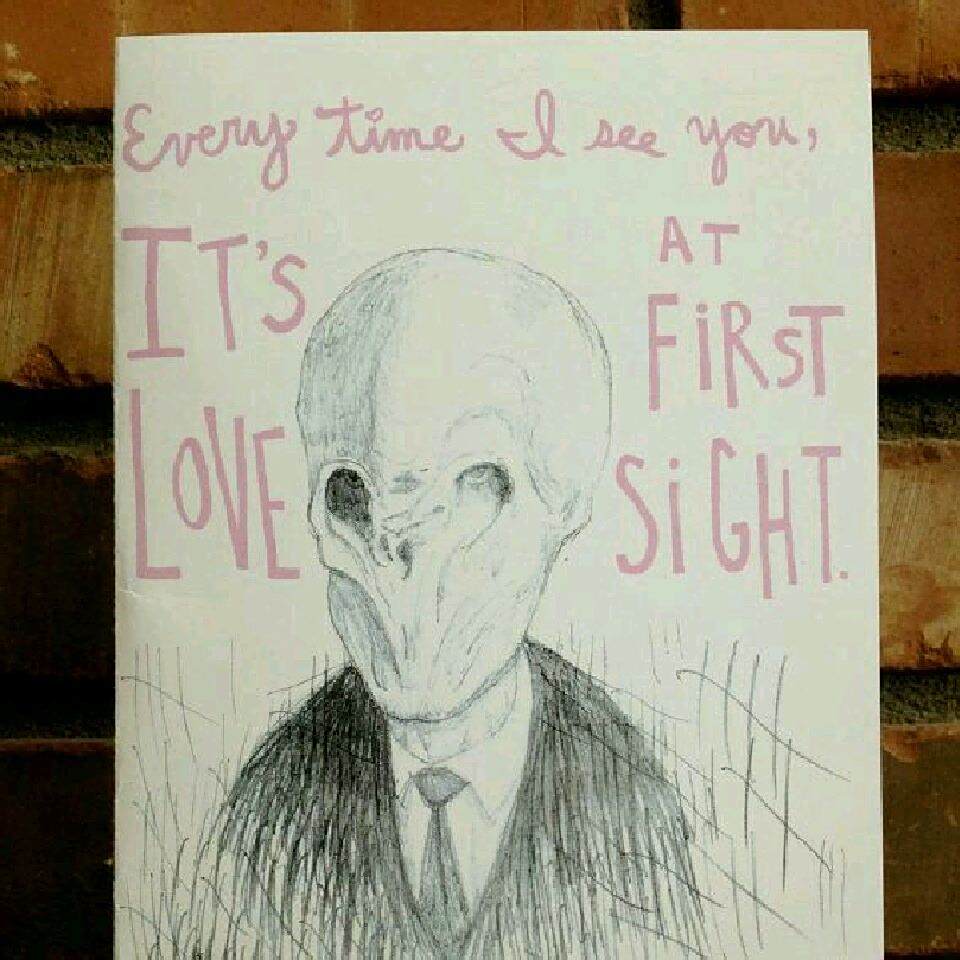 Every time I see you,
IT'S
LOVE
AT
FiRST
SiGHT.